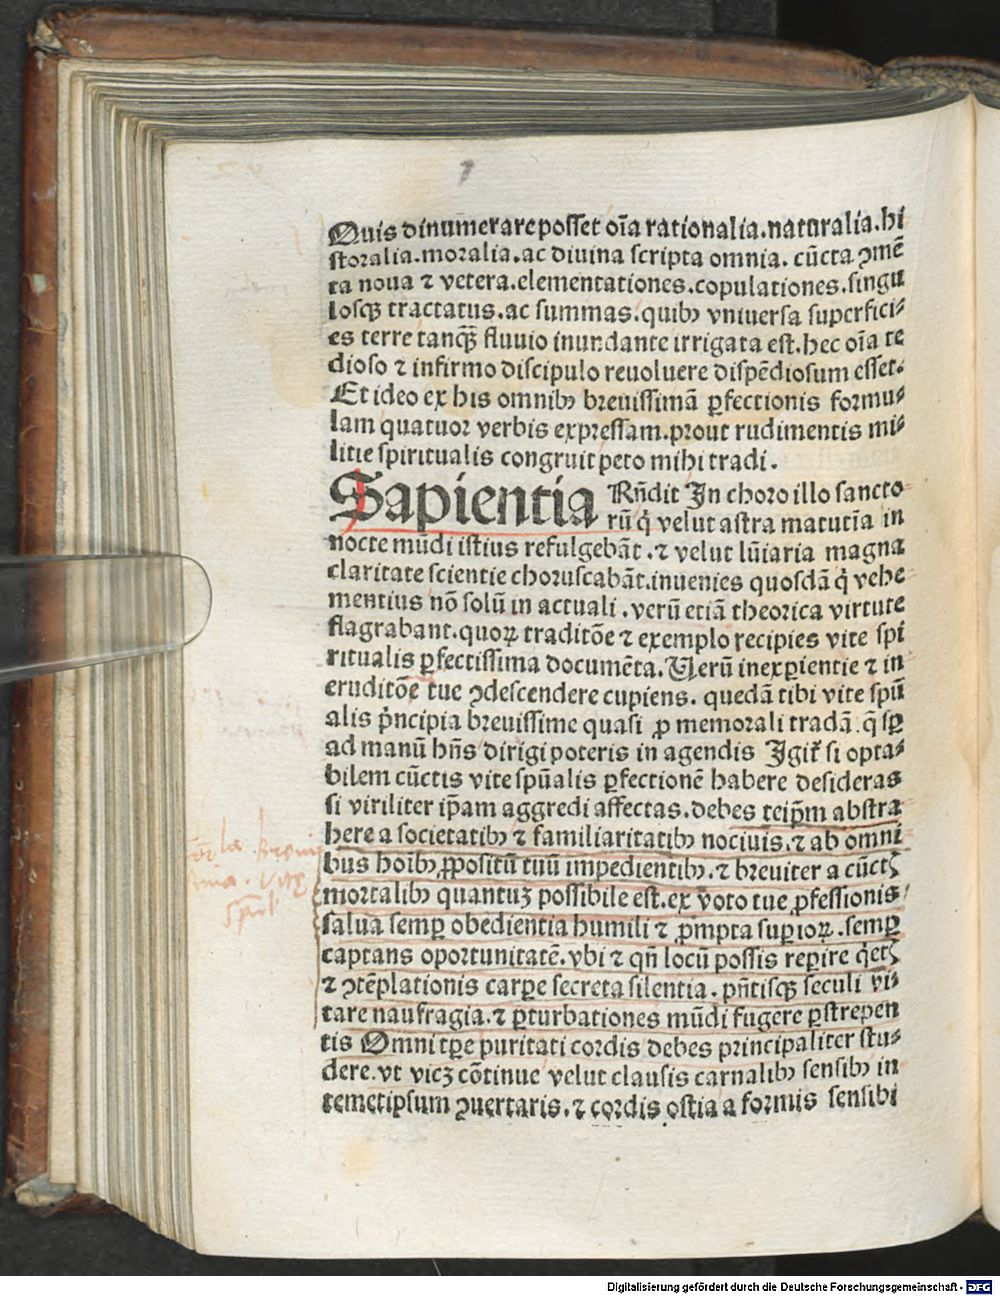 Quis dinumerare posset oīa rationalia.naturalia.hi
storalia.moralia.ac diuina scripta omnia. cūcta ꝯmē
ta noua ⁊ vetera.elementationes.copulationes.singu
losqꝫ tractatus.ac summas.quibꝰ vniuersa superfici⸗
es terre tanqꝫ̄ fluuio inundante irrigata est.hec oīa te
dioso ⁊ infirmo discipulo reuoluere dispēdiosum esset.
Et ideo ex his omnibꝰ breuissimā ꝑfectionis formu⸗
lam quatuor verbis expressam.prout rudimentis mi⸗
litie spiritualis congruit peto mihi tradi.
Sapientia Rn̄dit In choro illo sancto
rū q̇ velut astra matutīa in
nocte mūdi istius refulgebāt .⁊ velut lūiaria magna
claritate scientie choruscabāt.inuenies quosdā q̇ vehe
mentius nō solū in actuali .verū etiā theorica virtute
flagrabant.quoꝝ traditōe ⁊ exemplo recipies vite spi
ritualis ꝑfectissima documēta.Verū inexꝑientie ⁊ in
eruditōe tue ꝯdescendere cupiens. quedā tibi vite spū
alis pͥncipia breuissime quasi ꝓ memorali tradā q̄ sꝑ
ad manū hn̄s dirigi poteris in agendis Igit᷑ si opta⸗
bilem cūctis vite spūalis ꝑfectionē habere desideras
si viriliter ip̄am aggredi affectas.debes teip̄m abstra
here a societatibꝰ ⁊ familiaritatibꝰ nociuis.⁊ ab omni
bus hoībꝰ ꝓpositū tuū impedientibꝰ.⁊ breuiter a cūctꝭ
mortalibꝰ quantuꝫ possibile est.ex voto tue ꝓfessionis
salua semꝑ obedientia humili ⁊ ꝓmpta supioꝝ .semꝑ
captans oportunitatē. vbi ⁊ qn̄ locū possis reꝑire q̇etꝭ
⁊ ꝯtēplationis carpe secreta silentia . pn̄tisqꝫ seculi vi⸗
tare naufragia.⁊ ꝑturbationes mūdi fugere ꝑstrepen
tis Omni tꝑe puritati cordis debes principaliter stu⸗
dere.vt vicꝫ cōtinue velut clausis carnalibꝰ sensibꝰ in
temetipsum ꝯuertaris.⁊ cordis ostia a formis sensibi
Digitalisierung gefördert durch die Deutsche Forschungsgemeinschaft - DFG